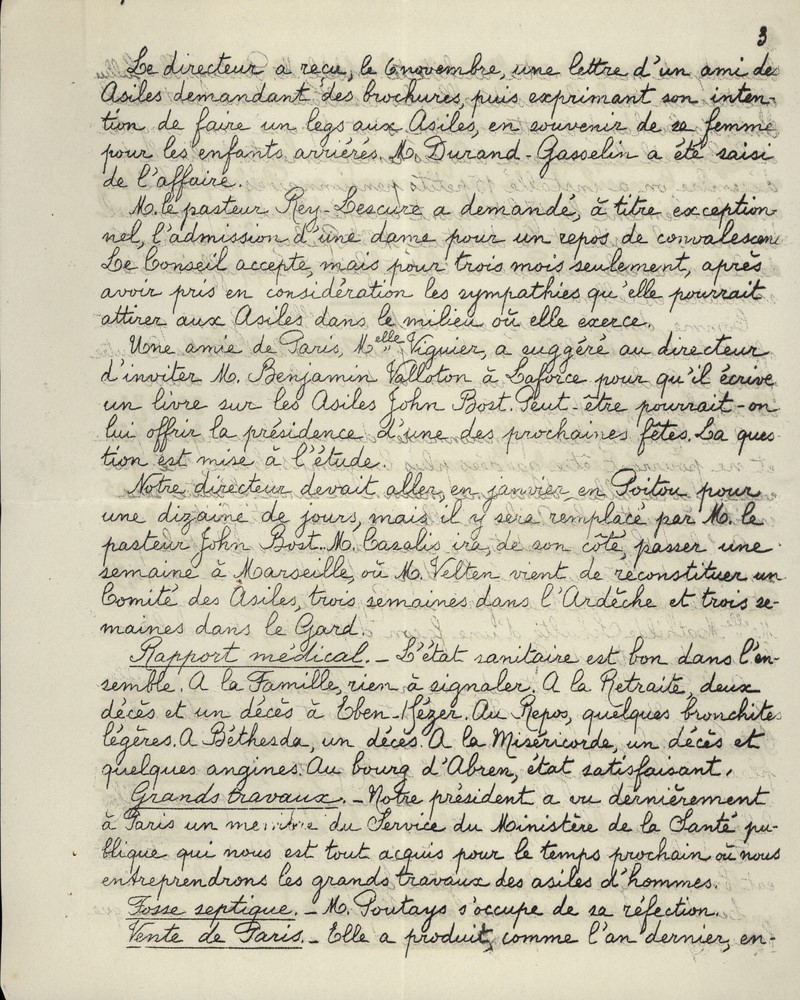 3
Le directeur a reçu, le 6 novembre, une lettre d'un ami des
Asiles demandant des brochures, puis exprimant son inten-
tion de faire un legs aux Asiles, en souvenir de sa femme
pour les enfants arriérés. M. Durand-Gasselin a été saisi
de l'affaire.
M. le pasteur Rey-Lescure a demandé, à titre exception-
nel, l'admission d'une dame pour un repos de convalescen
Le Conseil accepte, mais pour trois mois seulement, après
avoir pris en considération les sympathies qu'elle pourrait
attirer aux Asiles dans le milieu où elle exerce.
Une amie de Paris, Melle Viguier, a suggéré au directeur
d'inviter M. Benjamin Valloton à Laforce pour qu'il écrive
un livre sur les Asiles John Bost. Peut-être pourrait-on
lui offrir la présidence d'une des prochaines fêtes. La ques-
tion est mise à l'étude.
Notre directeur devait aller, en janvier, en Poitou pour
une dizaine de jours, mais il y sera remplacé par M. le
pasteur John Bost. M. Casalis ira, de son côté, passer une
semaine à Marseille, où M. Velten vient de reconstituer un
Comité des Asiles, trois semaines dans l'Ardèche et trois se-
maines dans le Gard.
Rapport médical. _ L'état sanitaire est bon dans l'en-
semble. A la Famille, rien à signaler. A la Retraite, deux
décès et un décès à Eben-Hézer. Au Repos, quelques bronchites
légères. A Béthesda, un décès. A la Miséricorde, un décès et
quelques angines. Au bourg d'Abren, état satisfaisant.
Grands travaux. _ Notre président a vu dernièrement
à Paris un membre du Service du Ministère de la Santé pu-
blique qui nous est tout acquis pour le temps prochain où nous
entreprendrons les grands travaux des asiles d'hommes.
Fosse septique. _ M. Poutays s'occupe de sa réfection.
Vente de Paris. _ Elle a produit, comme l'an dernier, en-